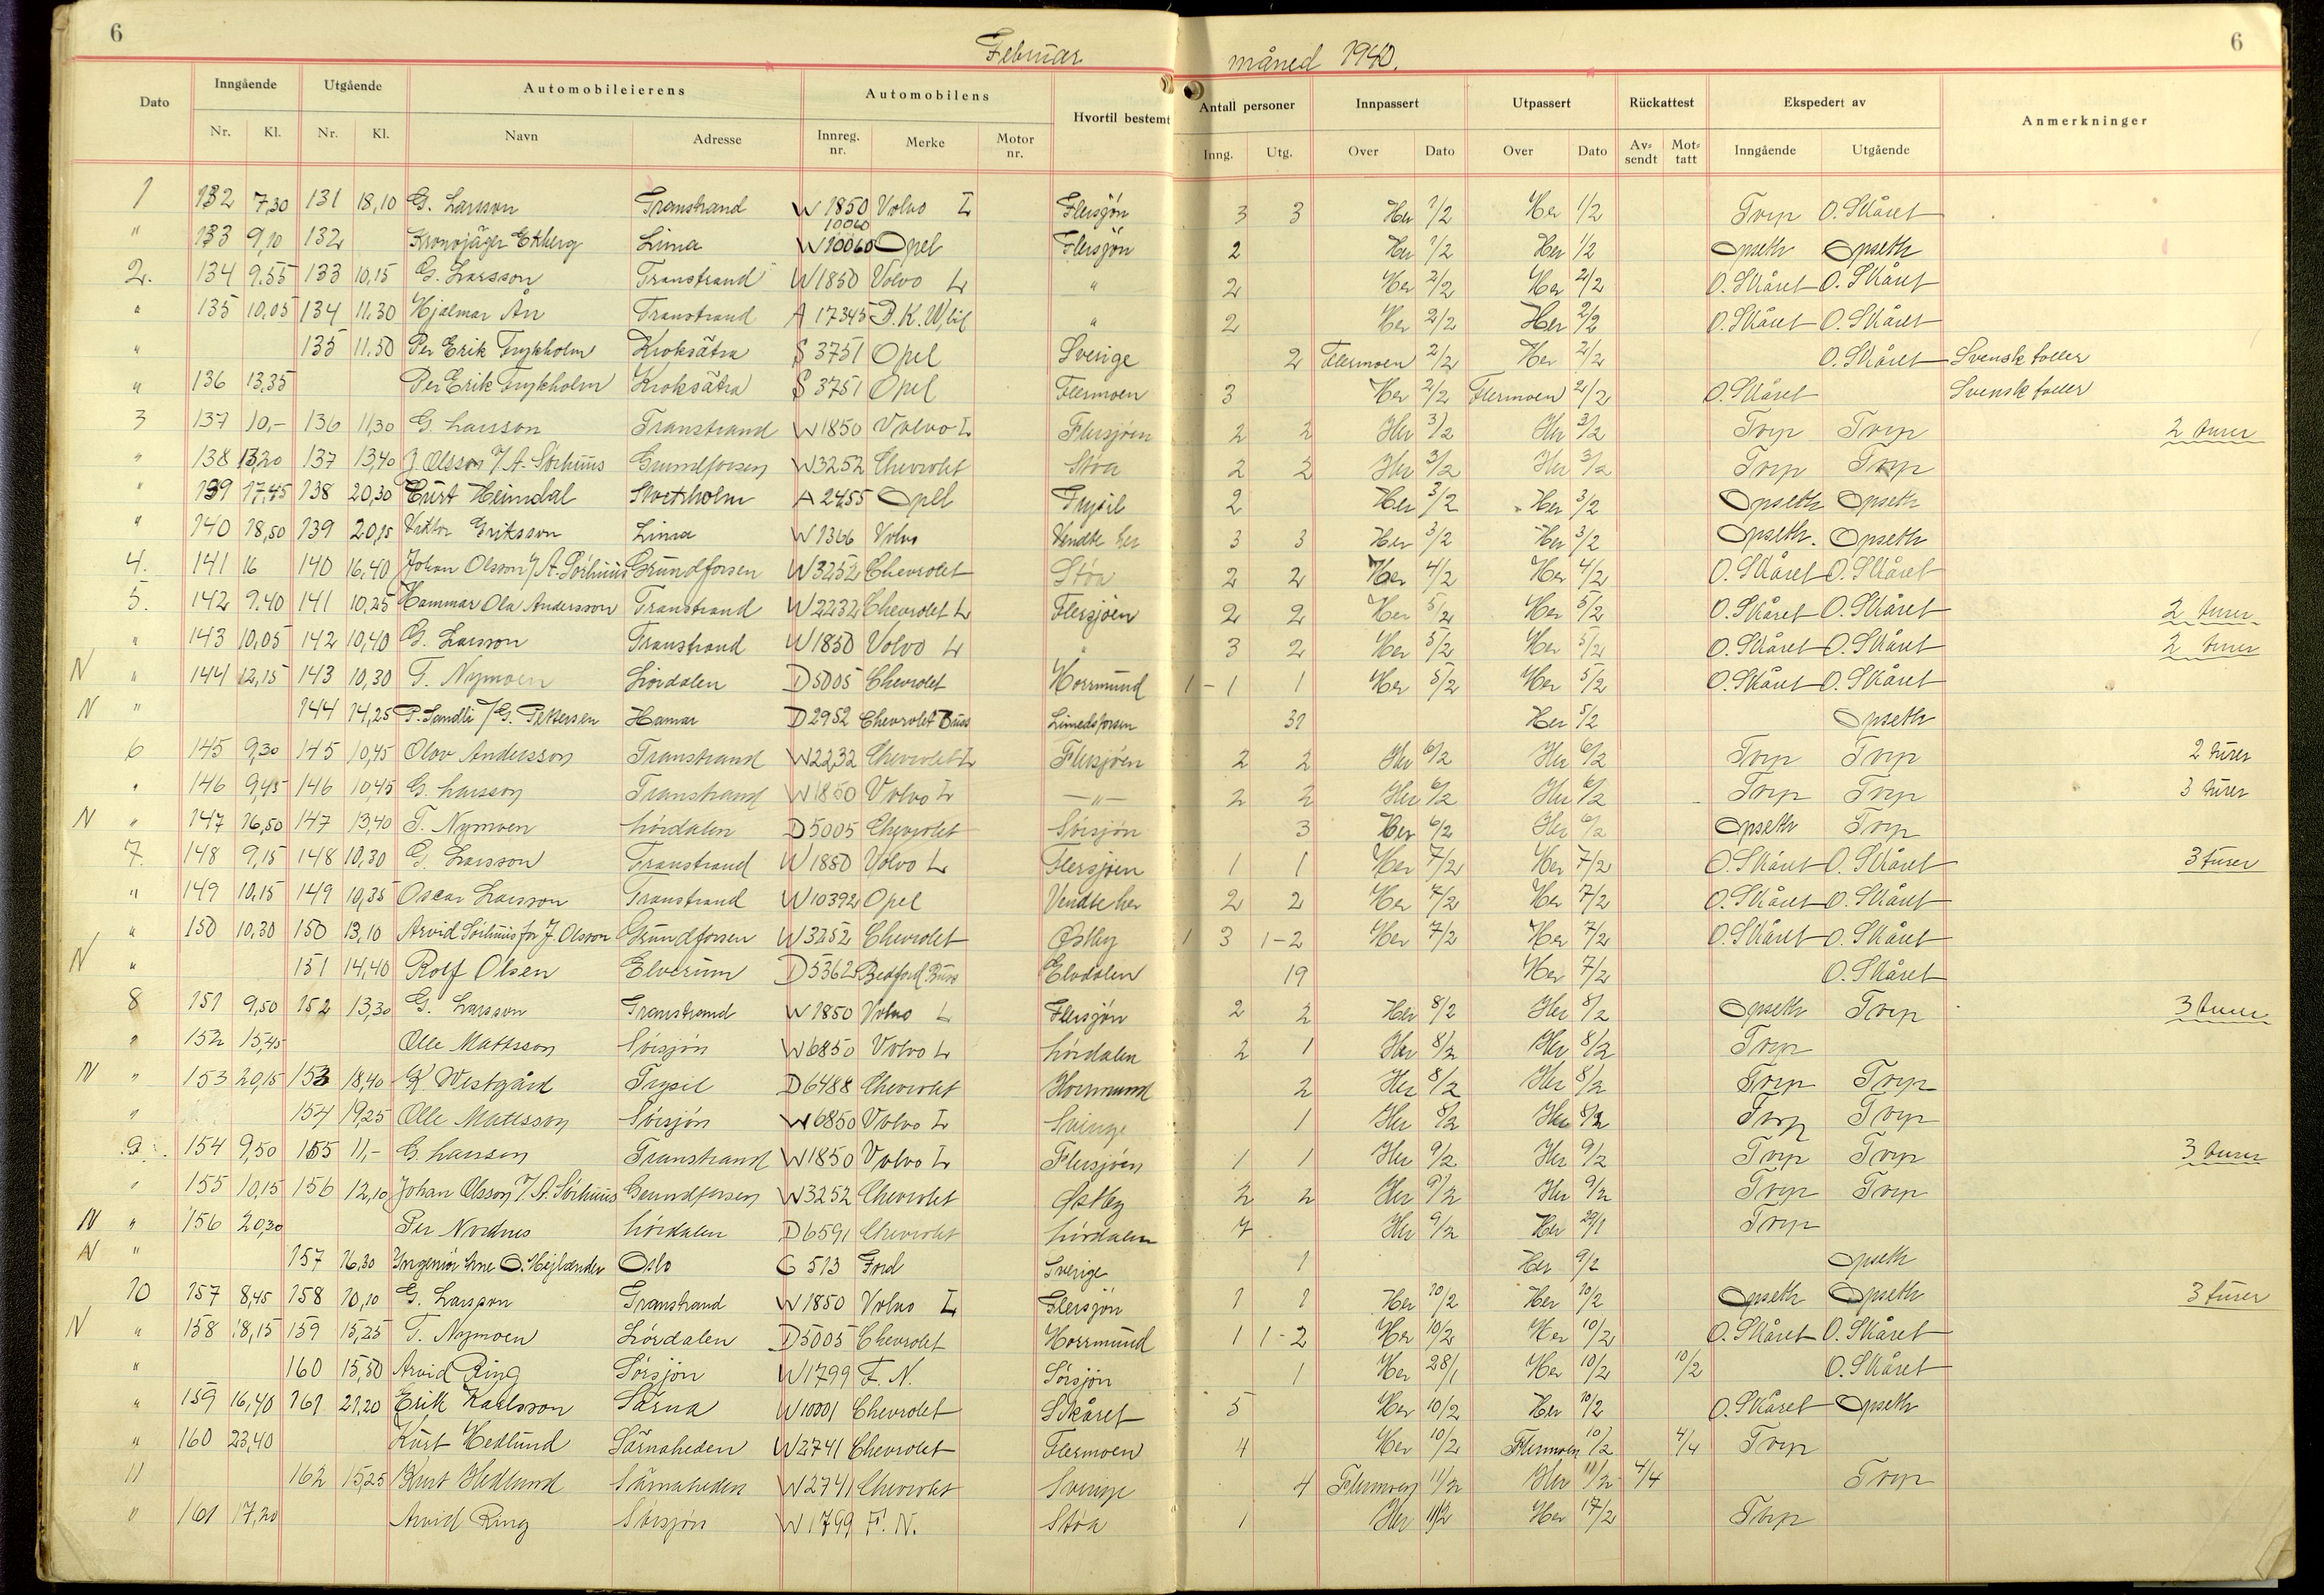 6
6
Februar måned 1940.
Dato Inngående Utgående Automobileierens Automobilens Hvortil bestemt Antall personer Innpassert Utpassert Rückattest Ekspedert av Anmerkninger
Nr. Kl. Nr. Kl. Navn Adresse Innreg. nr. Merke Motor nr. Inng. Utg. Over Dato Over Dato Av-sendt Mot-tatt Inngående Utgående
1 132 7,30 131 18,10 G. Larsson Transtrand W 1850 Volvo L Flersjön 3 3 Her 1/2 Her 1/2 Torp O. Skåret
10060
" 133 9,10 132 Kronojäger Ekberg Lima W 10060 Opel Flersjön 2 Her 1/2 Her 1/2 Opseth Opseth
2. 134 9.55 133 10,15 G. Larsson Transtrand W 1850 Volvo L " 2 Her 2/2 Her 2/2 O. Skåret O. Skåret
" 135 10,05 134 11.30 Hjalmar År Transtrand A 17345 D.K.W, bil " 2 Her 2/2 Her 2/2 O. Skåret O. Skåret
" 135 11.50 Per Erik Frykholm Kroksätra S 3751 Opel Sverige 2 Flermoen 2/2 Her 2/2 O. Skåret Svensk toller
" 136 13,35 Per Erik Frykholm Kroksätra S 3751 Opel Flermoen 3 Her 2/2 Flermoen 2/2 O. Skåret Svensk toller
3 137 10,- 136 11,30 G. Larsson Transtrand W 1850 Volvo L Flersjöen 2 2 Her 3/2 Her 3/2 Torp Torp 2 turer
" 138 13,20 137 13,40 J Olsson v/ A. Sörhuus Grundforsen W 3252 Chevrolet Stöa 2 2 Her 3/2 Her 3/2 Torp Torp
" 139 17,45 138 20,30 Curt Heimdal Stockholm A 2455 Opel Trysil 2 Her 3/2 Her 3/2 Opseth Opseth
" 140 18,50 139 20,15 Viktor Eriksson Lima W 1366 Volvo Vendte her 3 3 Her 3/2 Her 3/2 Opseth. Opseth
4. 141 16 140 16,40 Johan Olsson v/ A. Sörhuus Grundforsen W 3252 Chevrolet Stöa 2 2 Her 4/2 Her 4/2 O. Skåret O. Skåret
5. 142 9.40 141 10,25 Hammar Ola Andersson Transtrand W 2232 Chevrolet L Flersjöen 2 2 Her 5/2 Her 5/2 O. Skåret O. Skåret 2 turer
" 143 10,05 142 10,40 G. Larsson Transtrand W 1850 Volvo L " 3 2 Her 5/2 Her 5/2 O. Skåret O. Skåret 2 turer
N " 144 12,15 143 10,30 T. Nymoen Lördalen D 5005 Chevrolet Horrmund 1-1 1 Her 5/2 Her 5/2 O. Skåret O. Skåret
N " 144 14,25 P. Sandli v/ G. Pettersen Hamar D 2952 Chevrolet Buss Limedsforsen 31 Her 5/2 Opseth
6 145 9,30 145 10,45 Olov Andersson Transtrand W 2232 Chevrolet L Flersjöen 2 2 Her 6/2 Her 6/2 Torp Torp 2 turer
" 146 9,45 146 10,45 G. Larsson Transtrand W 1850 Volvo L -"- 2 2 Her 6/2 Her 6/2 Torp Torp 3 turer
N " 147 16,50 147 13,40 T. Nymoen Lördalen D 5005 Chevrolet Sörsjön 3 Her 6/2 Her 6/2 Opseth Torp
7. 148 9,15 148 10,30 G. Larsson Transtrand W 1850 Volvo L Flersjöen 1 1 Her 7/2 Her 7/2 O. Skåret O. Skåret 3 turer
" 149 10.15 149 10,35 Oscar Larsson Transtrand W 10392 Opel Vendte her 2 2 Her 7/2 Her 7/2 O. Skåret O. Skåret
" 150 10,30 150 13,10 Arvid Sörhuus for J. Olsson Grundforsen W 3252 Chevrolet Östby 1 3 1-2 Her 7/2 Her 7/2 O. Skåret O. Skåret
N " 151 14,40 Rolf Olsen Elverum D 5362 Bedford Buss Elvdalen 19 Her 7/2 O. Skåret
8 151 9,50 152 13,30 G. Larsson Transtrand W 1850 Volvo L Flersjön 2 2 Her 8/2 Her 8/2 Opseth Torp 3 turer
" 152 15,45 Olle Mattsson Sörsjön W 6850 Volvo L Lördalen 2 1 Her 8/2 Her 8/2 Torp
N " 153 20,15 153 18,40 K Westgård Trysil D 6488 Chevrolet Horrmund 2 Her 8/2 Her 8/2 Torp Torp
" 154 19,25 Olle Mattsson Sörsjön W 6850 Volvo L Sverige 1 Her 8/2 Her 8/2 Torp Torp
9 154 9,50 155 11,- G. Larsson Transtrand W 1850 Volvo L Flersjöen 1 1 Her 9/2 Her 9/2 Torp Torp 3 turer
" 155 10,15 156 12,10 Johan Olsson v/ A. Sörhuus Grundforsen W 3252 Chevrolet Østby 2 2 Her 9/2 Her 9/2 Torp Torp
N " 156 20,30 Per Nordnes Lördalen D 6591 Chevrolet Lördalen 7 Her 9/2 Her 29/1 Torp
N " 157 16,30 Yngeniör Arne O. Mejlænder Oslo C 513 Ford Sverige 1 Her 9/2 Opseth
10 157 8,45 158 10,10 G. Larsson Transtrand W 1850 Volvo L Flersjön 1 1 Her 10/2 Her 10/2 Opseth Opseth 3 turer
N " 158 18,15 159 15,25 T. Nymoen Lördalen D 5005 Chevrolet Horrmund 1 1-2 Her 10/2 Her 10/2 O. Skåret O. Skåret
" 160 15,50 Arvid Ring Sörsjön W 1799 F. N. Sörsjön 1 Her 28/1 Her 10/2 10/2 O. Skåret
" 159 16,40 161 21,20 Erik Karlsson Särna W 10001 Chevrolet Skåret 5 Her 10/2 Her 10/2 O. Skåret Opseth
" 160 23,40 Kurt Hedlund Särnaheden W 2741 Chevrolet Flermoen 4 Her 10/2 Flermoen 10/2 4/4 Torp
11 162 15,25 Kurt Hedlund Särnaheden W 2741 Chevrolet Sverige 4 Flermoen 11/2 Her 11/2 4/4 Torp
" 161 17,20 Arvid Ring Sörsjön W 1799 F. N. Stöa 1 Her 11/2 Her 17/2 Torp